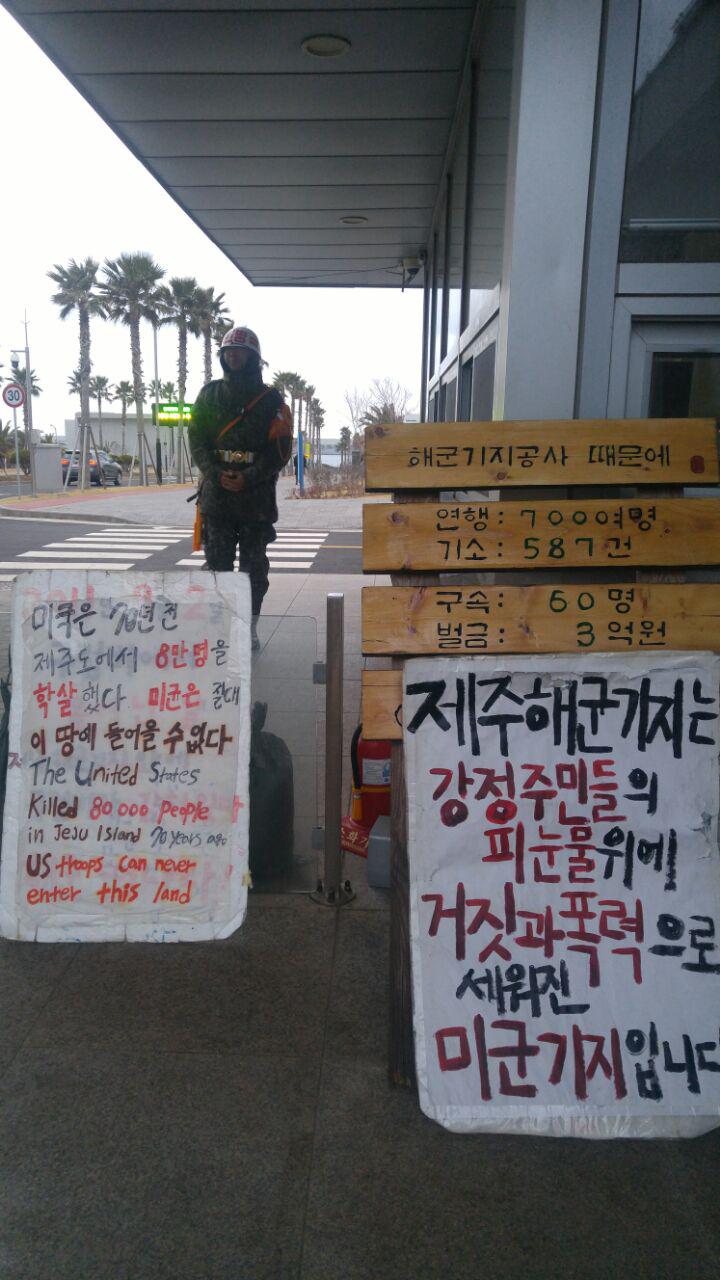 30
해군기지공사 때문에
연행: 700여명
기소: 587건
구속: 60명
벌금: 3억원
미국은 70년 전
제주도에서 8만명을
학살했다. 미군은 절대
이 땅에 들어올 수 없다
The United States
Killed 80000 people
in Jeju Island 70 years ago
US troops can never
enter this land
제주해군기지는
강정주민들의
피눈물위에
거짓과폭력으로
세워진
미군기지입니다